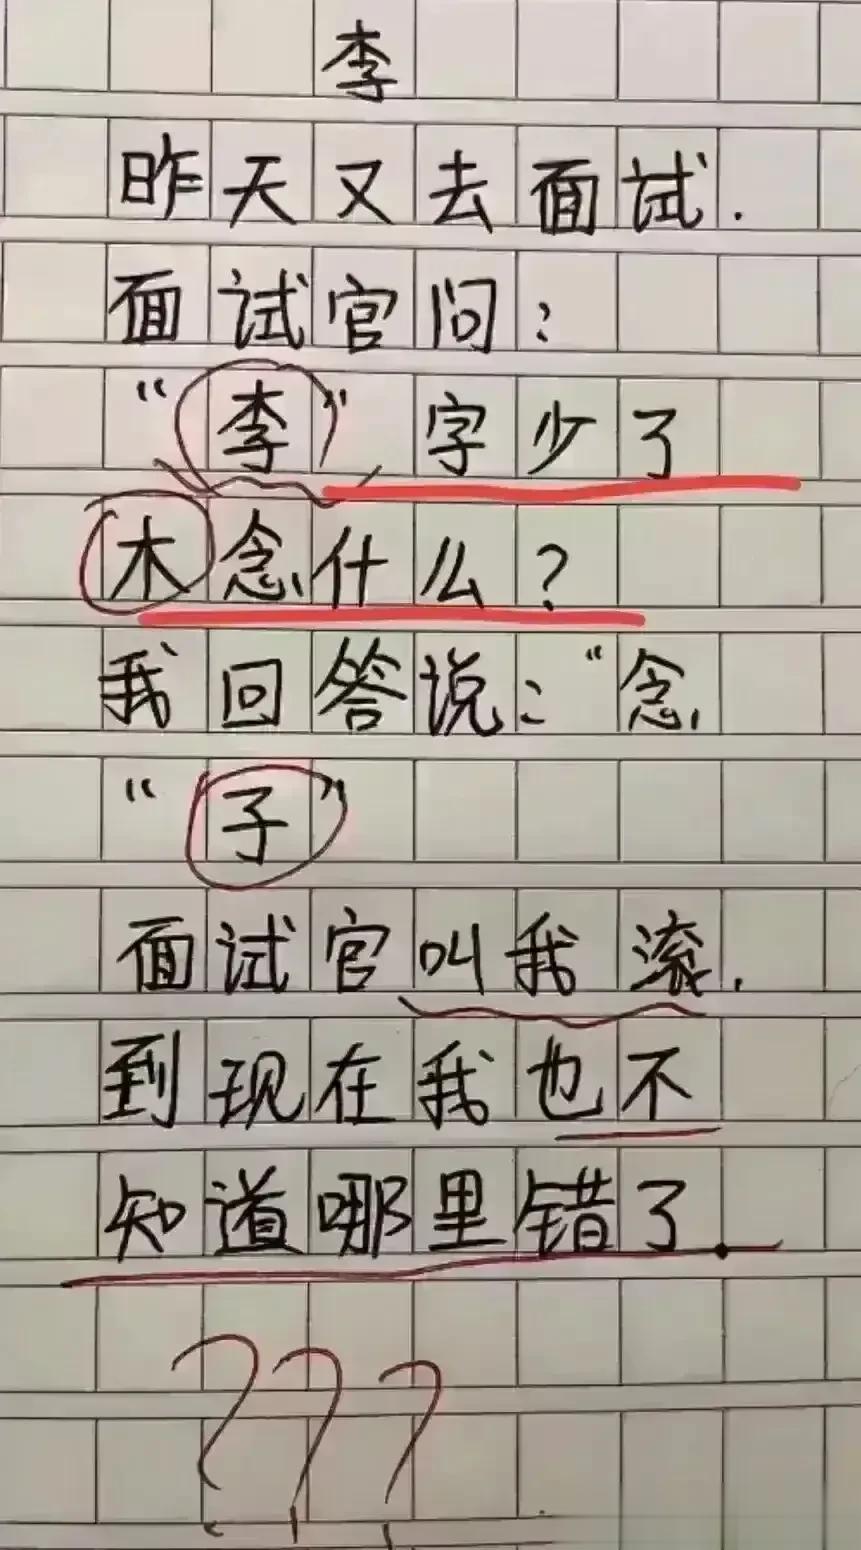 李
昨天又去面试.
面试官问:
“李”字少了
木念什么?
我回答说:“念
“子”
面试官叫我滚.
到现在我也不
知道哪里错了.
???